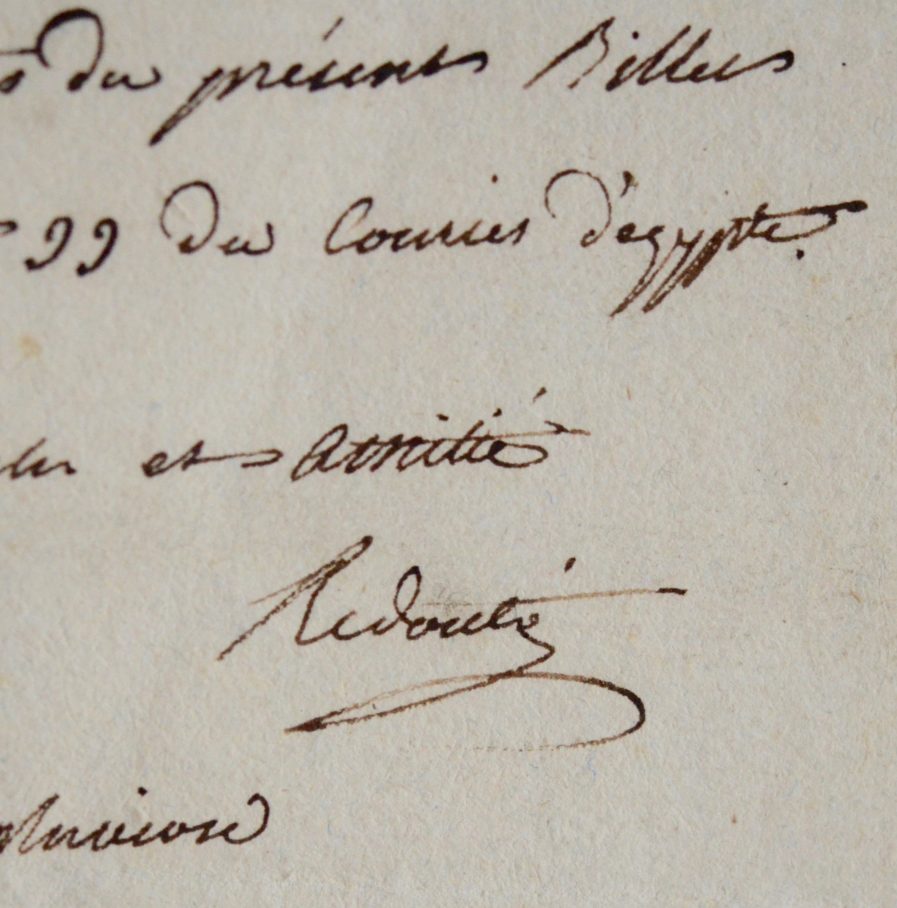 du présent Billet
99 du Courier d'egypte.
et amitié
Redouté